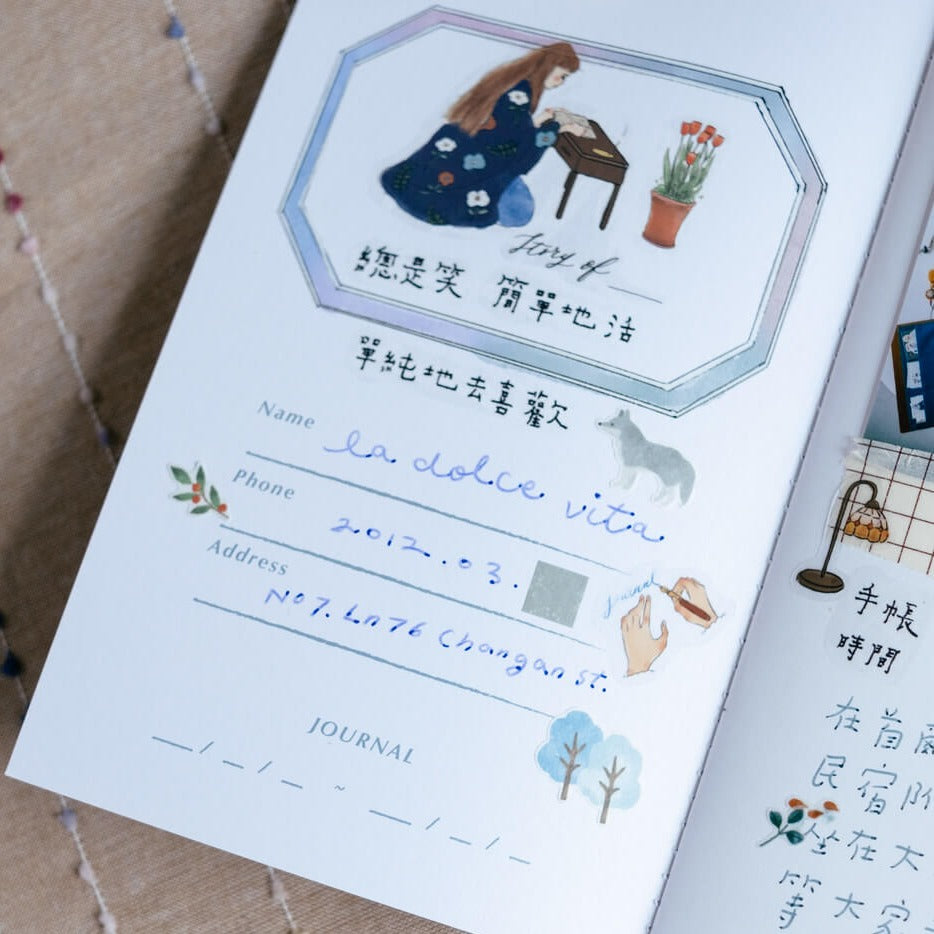 Story of
總是笑 簡單地活
單純地去喜歡
Name
la dolce vita
Phone
2012.03.
Address
No 7. Ln 76 Changan st.
Journal
JOURNAL
__/__/__ ~ __/__/__
手帳
時間
在首
民宿
坐在大
等大家